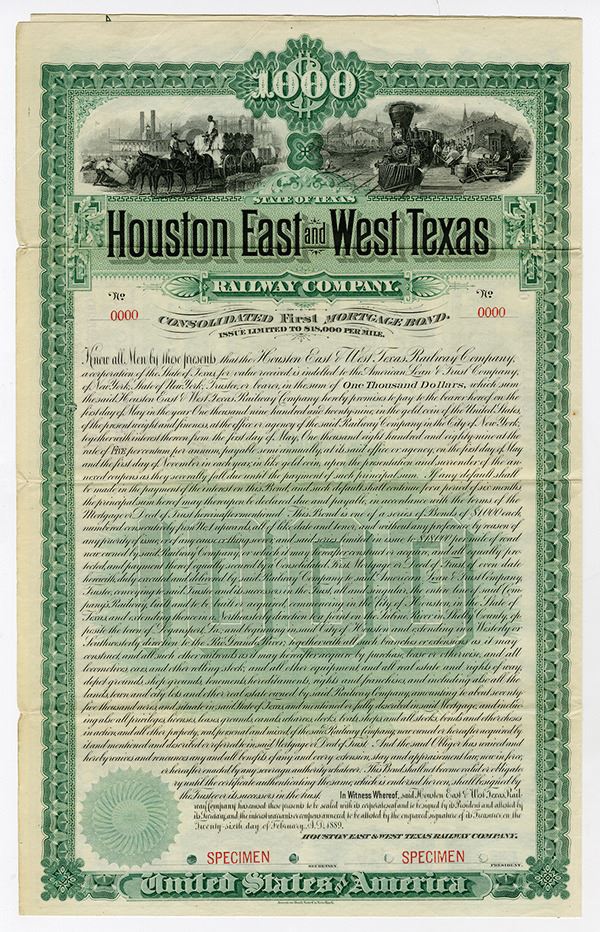 1000
STATE OF TEXAS
Houston East and West Texas
RAILWAY COMPANY.
No No
0000 0000
CONSOLIDATED First MORTGAGE BOND.
ISSUE LIMITED TO $18,000 PER MILE.
Know all Men by these presents, that the Houston East & West Texas Railway Company,
a corporation of the State of Texas, for value received is indebted to the American Loan & Trust Company,
of New York, State of New York, Trustee, or bearer, in the sum of One Thousand Dollars, which sum
the said Houston East & West Texas Railway Company hereby promises to pay to the bearer hereof on the
first day of May in the year One thousand nine hundred and twenty nine, in the gold coin of the United States,
of the present weight and fineness, at the office or agency of the said Railway Company in the City of New York,
together with interest thereon from the first day of May, One thousand eight hundred and eighty-nine at the
rate of FIVE per centum per annum, payable semi annually, at its said office or agency, on the first day of May
and the first day of November in each year, in like gold coin, upon the presentation and surrender of the an-
nexed coupons as they severally fall due until the payment of such principal sum. If any default shall
be made in the payment of the interest on this Bond, and such default shall continue for a period of six months
the principal sum hereof may thereupon be declared due and payable, in accordance with the terms of the
Mortgage or Deed of Trust hereinafter mentioned. This Bond is one of a series of Bonds of $1000 each,
numbered consecutively from No. 1 upwards, all of like date and tenor, and without any preference by reason of
any priority of issue or of any cause or thing, said series limited in issue to $18000 per mile of road
now owned by said Railway Company, or which it may hereafter construct or acquire, and all equally pro-
tected, and payment hereof equally secured by a Consolidated First Mortgage or Deed of Trust, of even date
herewith, duly executed and delivered by said Railway Company to said American Loan & Trust Company,
Trustee, conveying to said Trustee and its successors in the trust, all and singular, the entire line of said Com-
pany's Railway, built and to be built or acquired, commencing in the City of Houston, in the State of
Texas, and extending thence in a Northeasterly direction to a point on the Sabine River in Shelby County, op-
posite the town of Logansport, La., and beginning in said City of Houston and extending in a Westerly or
Southwesterly direction to the Rio Grande River; together with all such branches or extensions as it may
construct, and all such other railroads as it may hereafter acquire by purchase, lease or otherwise, and all
locomotives, cars, and other rolling stock, and all other equipment, and all real estate and rights of way,
depot grounds, shop grounds, tenements, hereditaments, rights and franchises, and including also all the
lands, town and city lots and other real estate owned by said Railway Company, amounting to about seventy
five thousand acres, and situate in said State of Texas, and mentioned or fully described in said Mortgage, and includ-
ing also all privileges, licenses, leases, grounds, canals, wharves, docks, boats, ships, and all stocks, bonds and other choses
in action, and all other property, real, personal and mixed, of the said Railway Company, now owned or hereafter acquired by
it and mentioned and described or referred to in said Mortgage or Deed of Trust. And the said Obligor has waived and
hereby waives and renounces any and all benefits of any and every extension, stay and appraisement law, now in force,
or hereafter enacted by any sovereign authority whatever. This Bond shall not become valid or obligato-
ry until the certificate authenticating the same, which is endorsed hereon, shall be signed by
the Trustee or its successors in the trust. In Witness Whereof, said Houston East & West Texas Rail-
way Company has caused these presents to be sealed with its corporate seal and to be signed by its President and attested by
its Secretary, and the interest warrants or coupons annexed to be attested by the engraved signature of its Treasurer on the
Twenty-sixth day of February, A.D. 1889.
HOUSTON EAST & WEST TEXAS RAILWAY COMPANY.
SPECIMEN SECRETARY. SPECIMEN PRESIDENT.
United States of America
American Bank Note Co. New York.